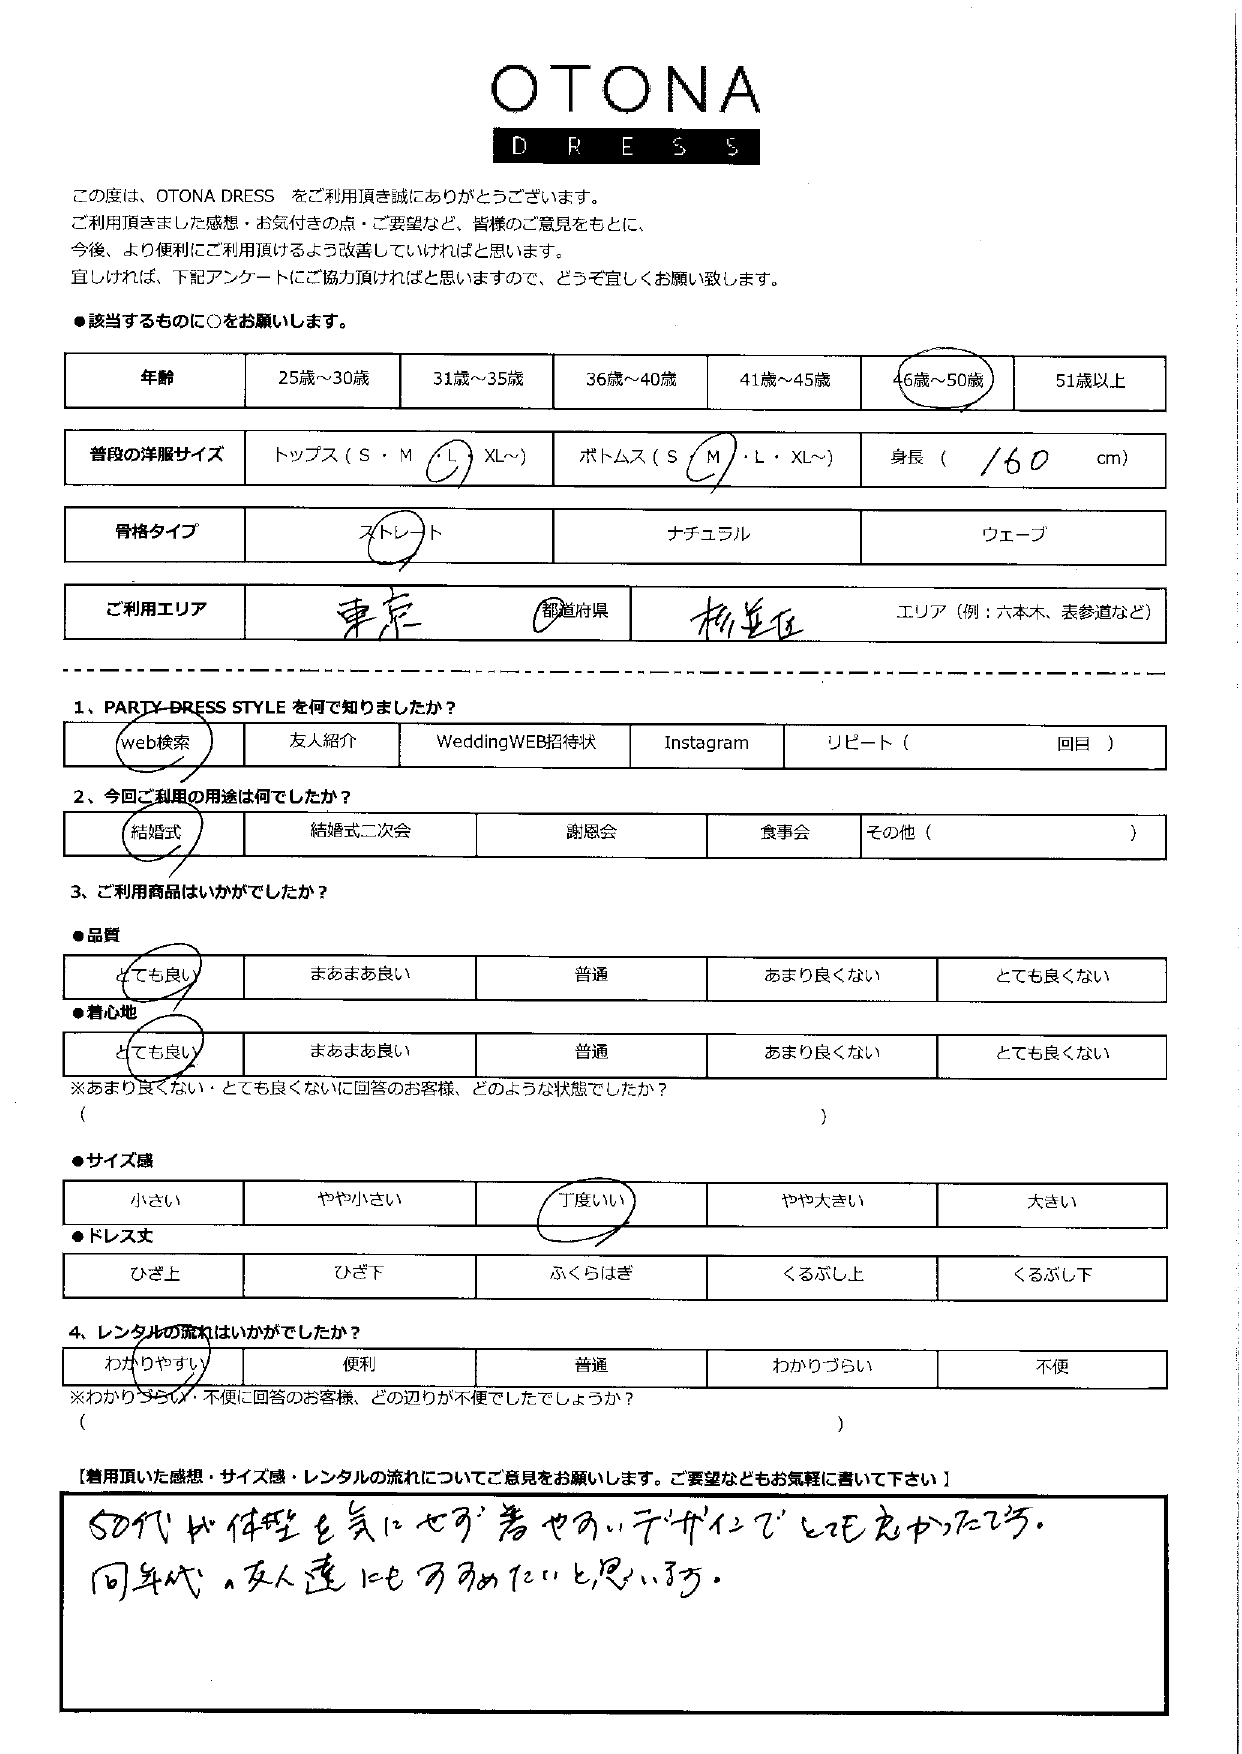 OTONA
DRESS
この度は、OTONA DRESS　をご利用頂き誠にありがとうございます。
ご利用頂きました感想・お気付きの点・ご要望など、皆様のご意見をもとに、
今後、より便利にご利用頂けるよう改善していければと思います。
宜しければ、下記アンケートにご協力頂ければと思いますので、どうぞ宜しくお願い致します。
●該当するものに○をお願いします。
年齢 25歳～30歳 31歳～35歳 36歳～40歳 41歳～45歳 46歳～50歳 51歳以上
普段の洋服サイズ トップス ( S ・ M ・L・ XL～) ボトムス ( S ・ M ・L・ XL～) 身長 ( 160 cm)
骨格タイプ ストレート ナチュラル ウェーブ
ご利用エリア 東京 都道府県 杉並区 エリア（例：六本木、表参道など）
1、PARTY DRESS STYLE を何で知りましたか？
web検索 友人紹介 WeddingWEB招待状 Instagram リピート（ 回目 ）
2、今回ご利用の用途は何でしたか？
結婚式 結婚式二次会 謝恩会 食事会 その他（ ）
3、ご利用商品はいかがでしたか？
●品質
とても良い まあまあ良い 普通 あまり良くない とても良くない
●着心地
とても良い まあまあ良い 普通 あまり良くない とても良くない
※あまり良くない・とても良くないに回答のお客様、どのような状態でしたか？
（ ）
●サイズ感
小さい やや小さい 丁度いい やや大きい 大きい
●ドレス丈
ひざ上 ひざ下 ふくらはぎ くるぶし上 くるぶし下
4、レンタルの流れはいかがでしたか？
わかりやすい 便利 普通 わかりづらい 不便
※わかりづらい・不便に回答のお客様、どの辺りが不便でしたでしょうか？
（ ）
【着用頂いた感想・サイズ感・レンタルの流れについてご意見をお願いします。ご要望などもお気軽に書いて下さい】
50代が体型を気にせず着やすいデザインでとても良かったです。
同年代の友人達にもすすめたいと思います。